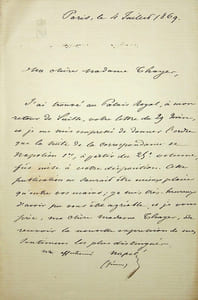 Paris, le 4 Juillet 1869.
Ma chère Madame Thayer,
J'ai trouvé au Palais Royal, à mon
retour de          , votre lettre du 29 Juin,
et je me suis empressé de donner l'ordre
que la suite de la correspondance de
Napoléon 1er, à partir du 25e volume,
fût mise à votre disposition. Cette
publication ne saurait être mieux placée
qu'entre vos mains; je suis très heureux
d'avoir pu vous être agréable, et je vous
prie, ma chère Madame Thayer, de
recevoir la nouvelle expression de mes
sentiments les plus distingués.
Napoléon
(Jérôme)